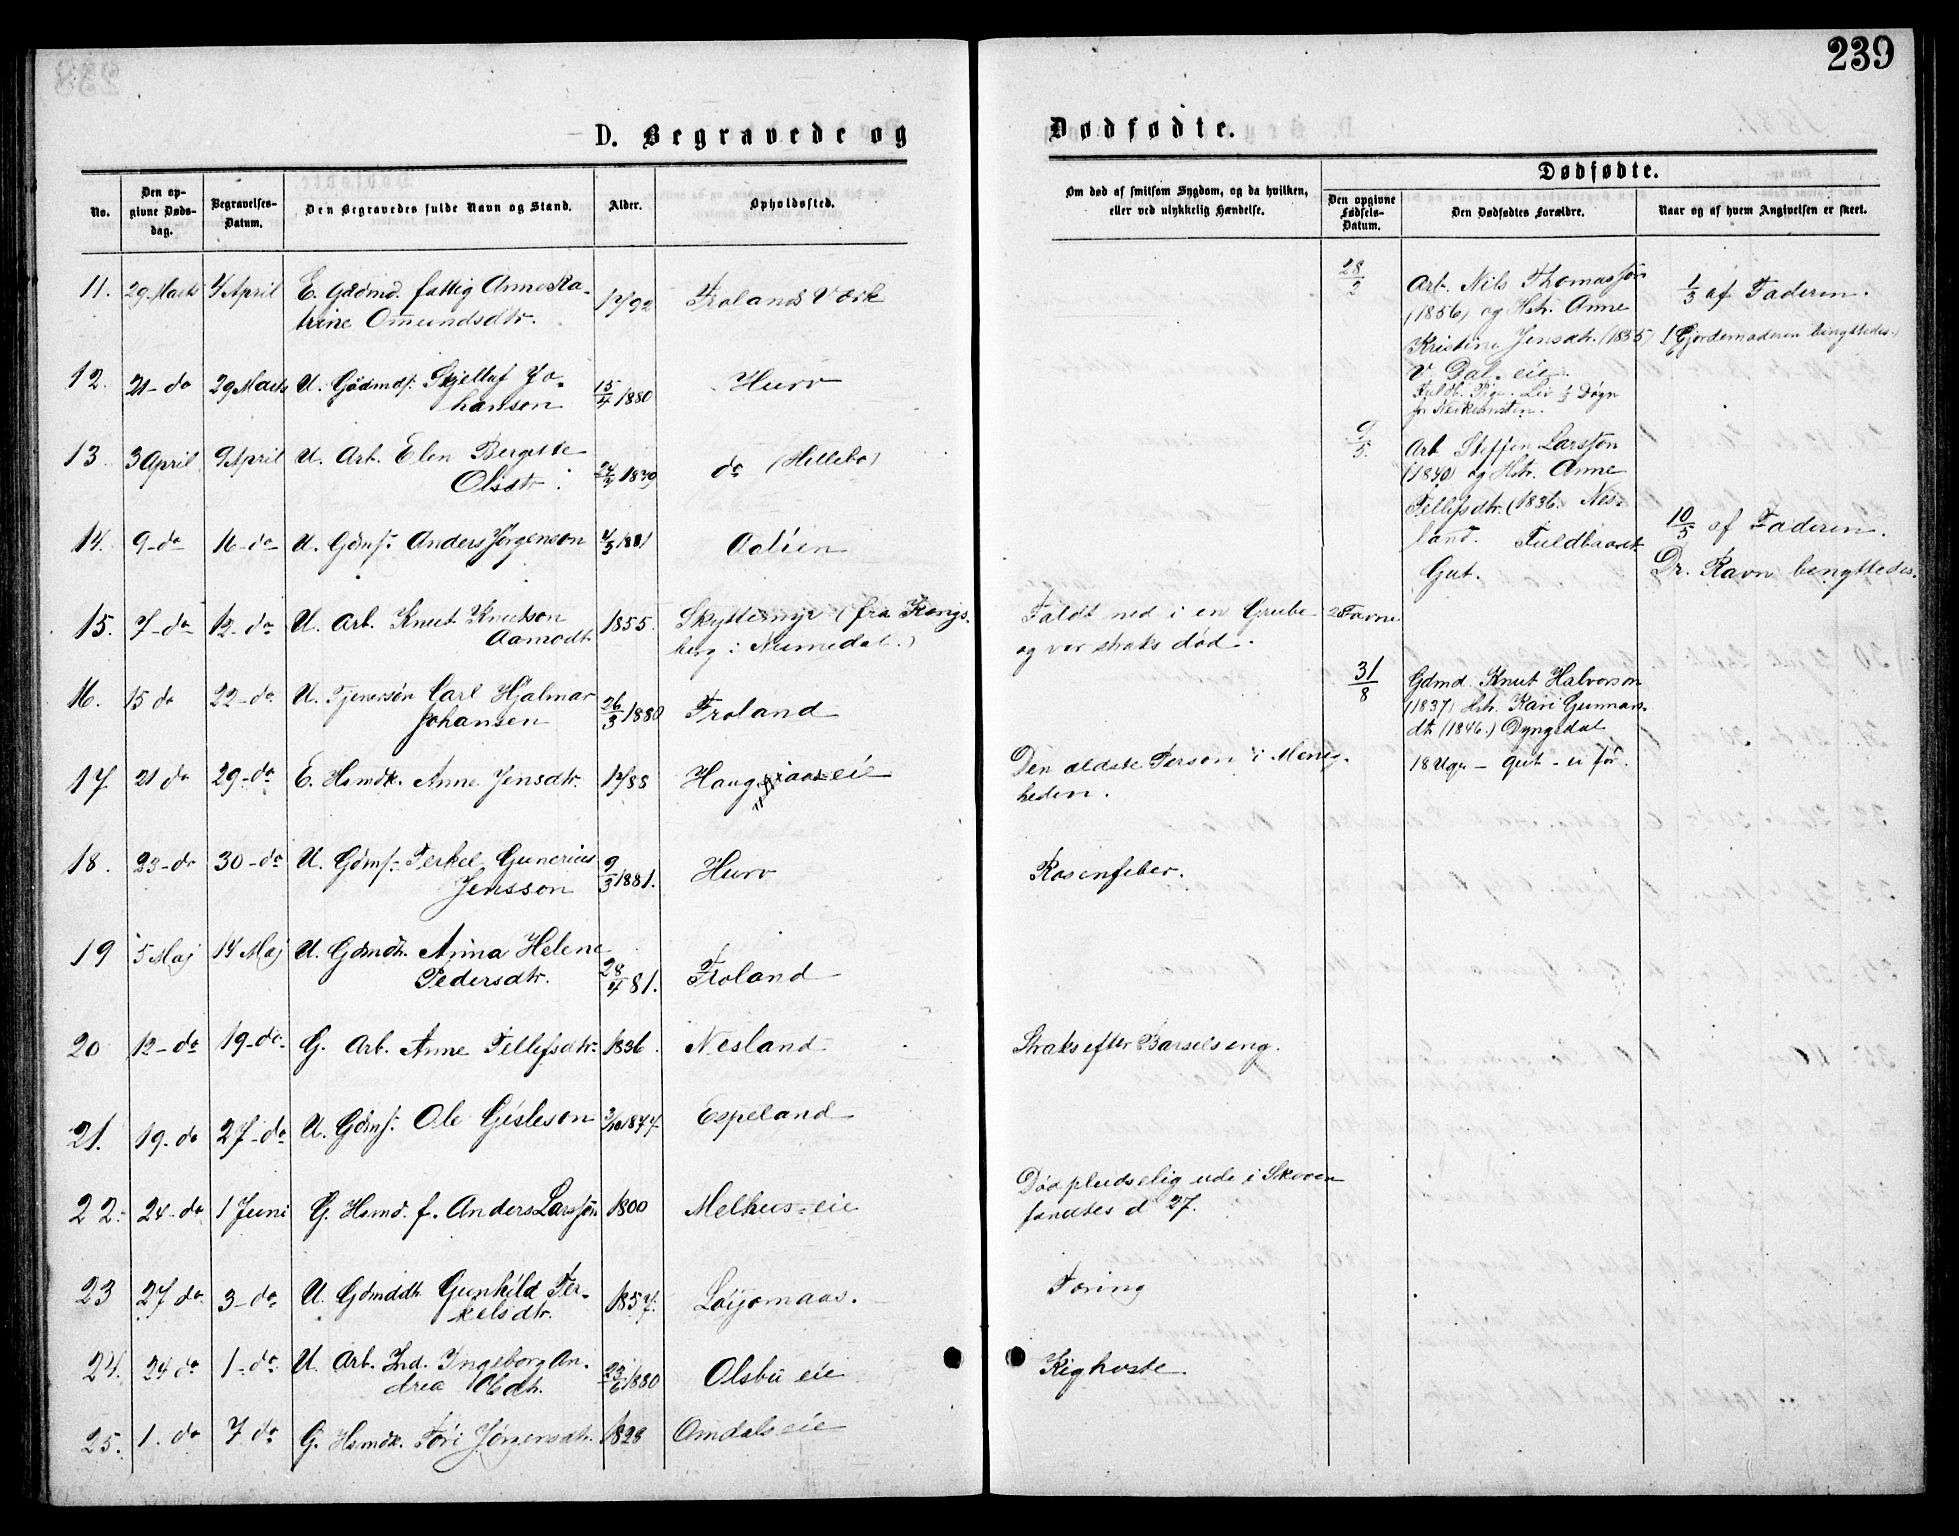 239
D. Begravede og
Dødfødte.
No.
Den opgivne Dødsdag.
Begravelses-Datum.
Den Begravedes fulde Navn og Stand.
Alder.
Opholdssted.
Om død af smitsom Sygdom, og da hvilken,
eller ved ulykkelig Hændelse.
Dødfødte.
Den opgivne Fødsels-Datum.
Den Dødfødtes Forældre.
Naar og af hvem Angivelsen er skeet.
11. 29 Marts 4 April E. Gdmd. fattig Anne Ka- Frolands Værk
trine Omundsdtr.
12. 21-do 29 Marts U. Gdmds. Tjellef Jo- 15/4 1880 Hurv
hanson
13. 3 April 9 April U. Arb. Elen Bergitte do (Hillebo)
Olsdtr. 1839
14. 9-do 16-do U. Gdmf. Anders Jørgenson 4/3 1881
15. 7-do 12-do U. Arb. Knut Knutson 1855. Skyttemyr (fra Kongs- Faldt ned i en Grube 2 Favne
Aamodt berg i Numedal.) og var straks død.
16. 15 do 22-do U. Tjenersøn Carl Hjalmar
Johansen 26/3 1880 Froland
17 21 do 29-do E. Hsmdk. Anne Jensdtr. Haug eie Den ældste Person i Menig-
heden.
18. 23-do 30-do U. Gdmf. Terkel Gunerius
Jensson 9/3 1881. Hurv Rosenfeber.
19 5 Maj 14 Maj U. Gdmdtr. Anna Helene
Pedersdtr. 28/4 81. Froland
20 12-do 19-do G. Arb. Anne Tellefsdtr. 1836. Nesland Straks efter Barselseng.
21. 19-do 27-do U. Gdmf. Ole Gisleson Espeland
22. 24-do 1 Juni G. Hsmd. f. Anders Larsson 1800 Melhus-eie Død pludselig ude i Skoven
fandtes d 27.
23 27 do 3-do U. Gdmddtr. Gunhild Ter-
kelsdtr. 1857. Løjomaas. Tæring
24. 24 do 1-do U Arb. Ind. Ingeborg An-
drea 23/6 1880 Olsbu eie Kighoste.
25. 1. do 7 do G. Hsmdk. Tøri Jørgensdtr. 1828 Omdals eie
28/2 Arb. Nils Thomassøn 1/3 af Faderen.
(1856) og Hstr. Anne
Kristine Jensdtr. (1855) (Gjordemoderen benyttedes.)
v Dal. eie.
9/5. Arb Steffen Larssøn
(1840) og Hstr. Anne
Tellefsdtr. (1836. Nes-
land. Fuldbaaret 10/5 af Faderen.
Gut. Dr. Ravn benyttedes.
31/8 Gdmd. Knut Halvorson
(1837) Hstr. Kari Gunnars-
dtr (1846.) Dyngedal
18 Uger - gut - ei før.